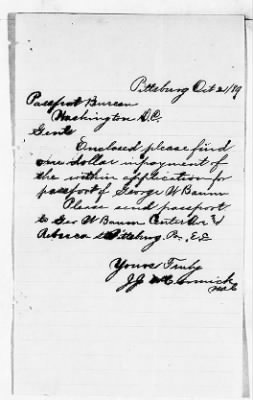 Pittsburg Oct 21/89
Passport Bureau
Washington D.C.
Gents
Enclosed please find
one dollar in payment of
the within application for
passport of George W Baum
Please send passport
to Geo W Baum Center Ave &
Rebecca St Pittsburg, Pa, E.E
Yours Truly
J.J. McCormick